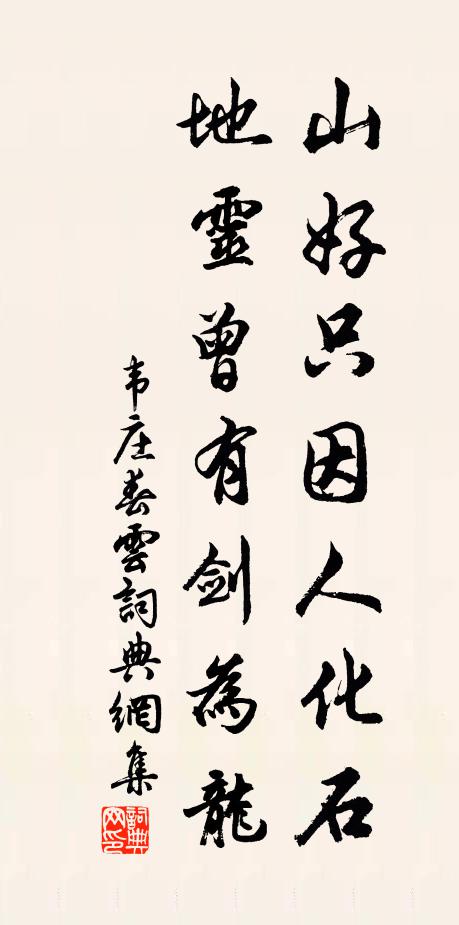 山好只因人化石
地靈曾有剑為龍
韦庄春雲詞典網集
詞典网印